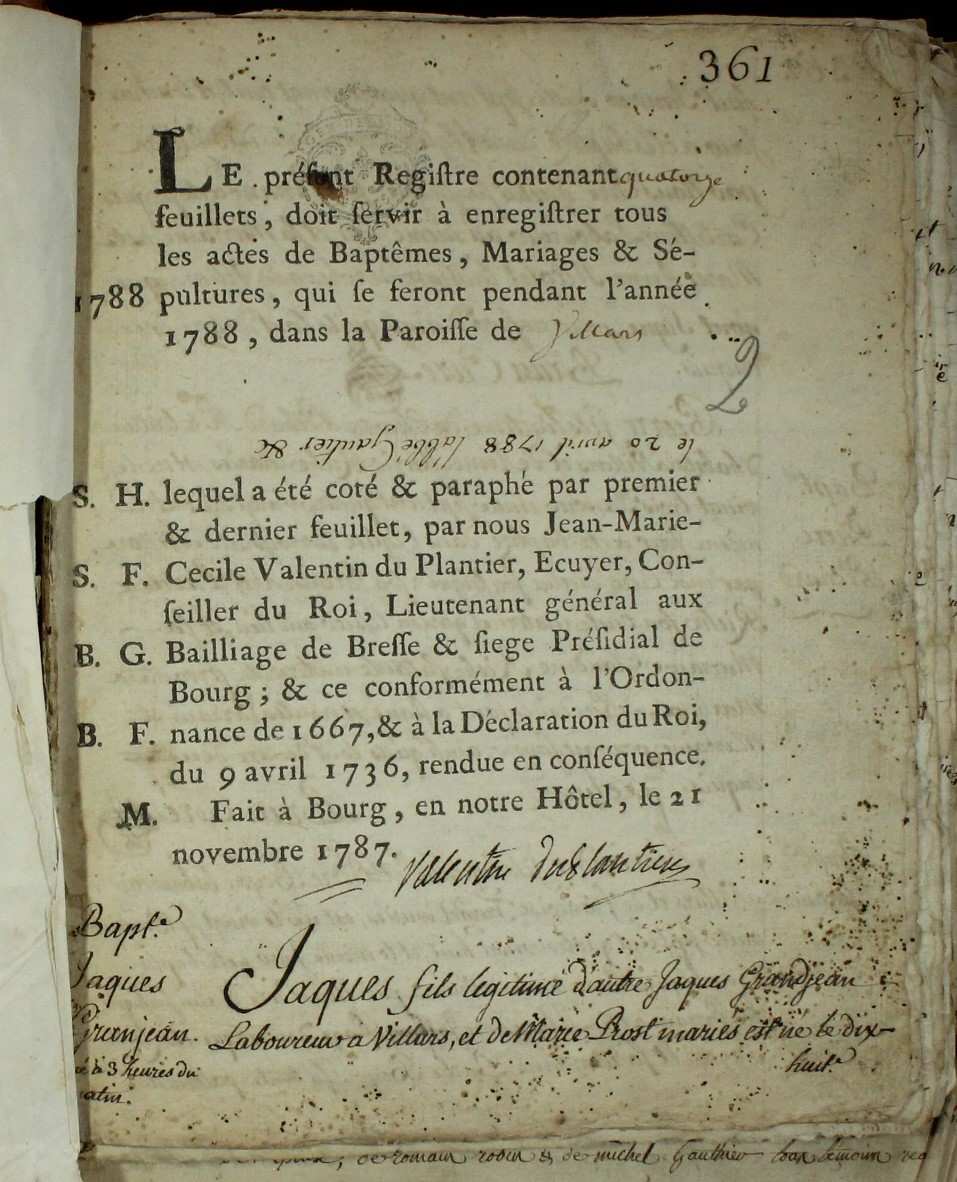 361
LE préſent Regiſtre contenant quatorze
feuillets, doit ſervir à enregiſtrer tous
les actes de Baptêmes, Mariages & Sé-
1788 pultures, qui ſe feront pendant l'année
1788, dans la Paroiſſe de Villars
2
le 20 avril 1788 l'abbé Gautier &c
S. H. lequel a été coté & paraphé par premier
& dernier feuillet, par nous Jean-Marie-
S. F. Cecile Valentin du Plantier, Ecuyer, Con-
ſeiller du Roi, Lieutenant général aux
B. G. Bailliage de Breſſe & ſiege Préſidial de
Bourg; & ce conformément à l'Ordon-
B. F. nance de 1667, & à la Déclaration du Roi,
du 9 avril 1736, rendue en conſéquence.
M. Fait à Bourg, en notre Hôtel, le 21
novembre 1787. Valentin duplantier
Bapt.e
Jaques
Granjean.
né à 3 heures du
matin.
Jaques fils legitime d'autre Jaques Grandjean
Laboureur a Villars, et de Marie Prost mariés est né le dix-
huit.e
de romain robin & de michel Gauthier